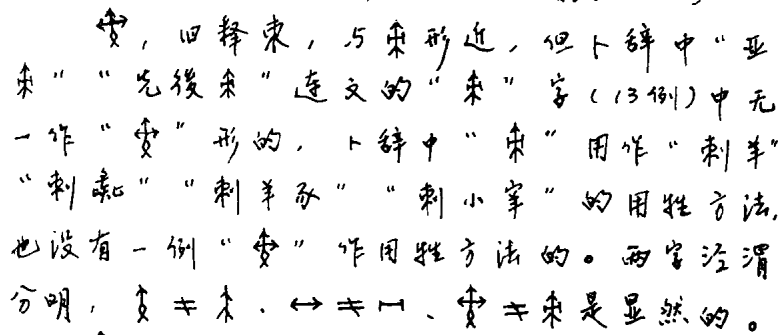 ，旧释朿，与形近，但卜辞中“亚
”“先後”连文的“”字（13例）中无
一作“”形的，卜辞中“”用作“刺羊”
“刺”“刺羊豕”“刺小𫳅”的用牲方法，
也没有一例“”作用牲方法的。两字泾渭
分明，≠．↔≠、≠是显然的。